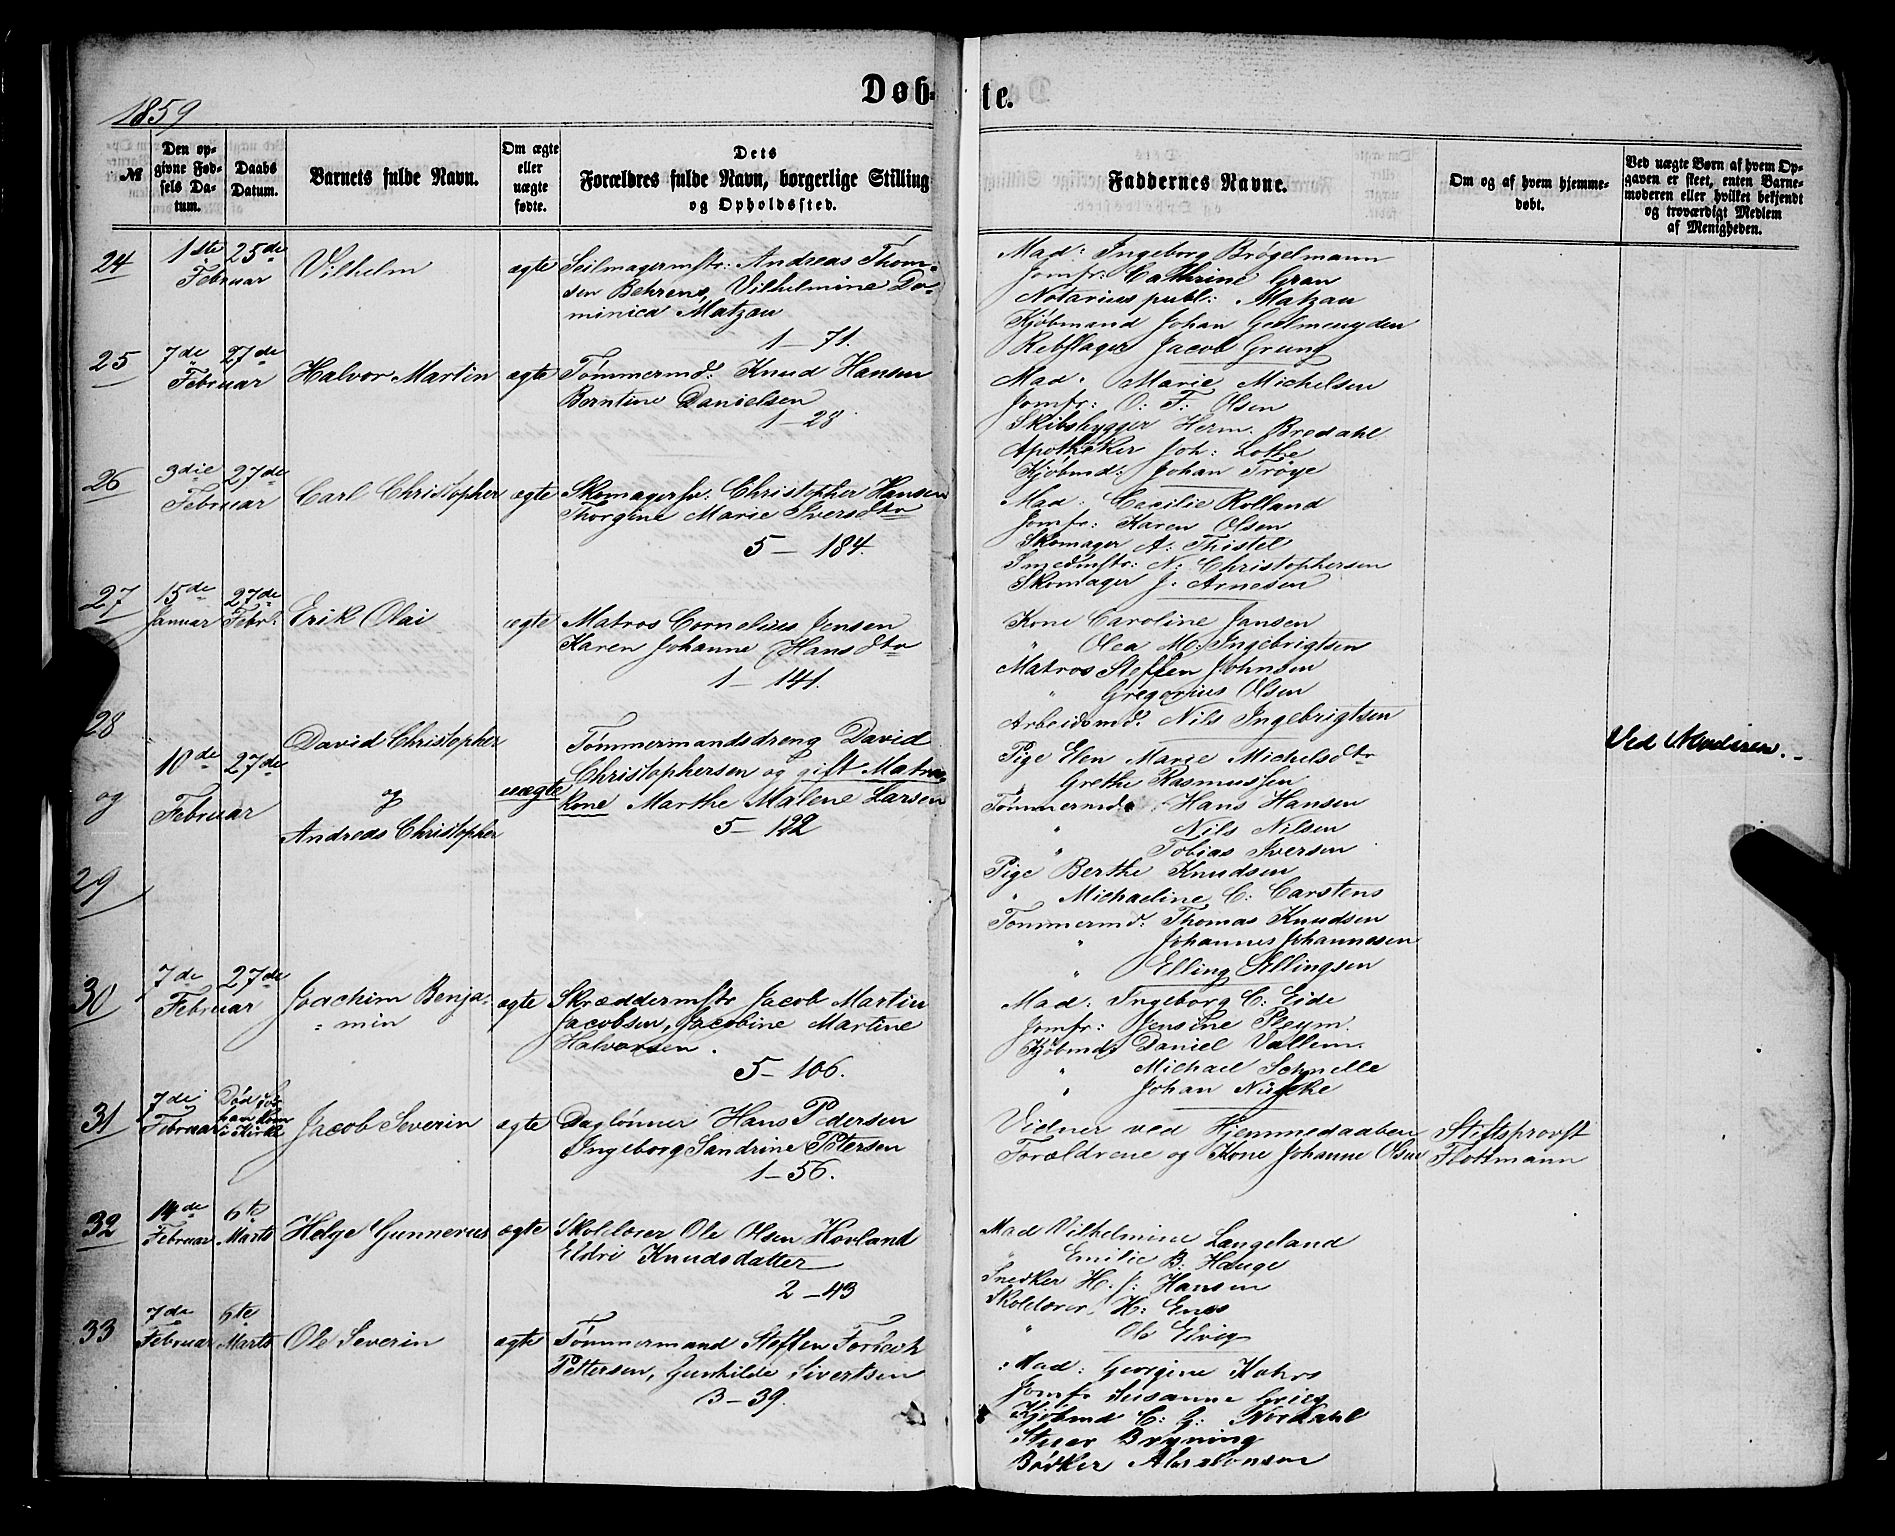 1859
Døbte.
№
Den opgivne Fødsels Datum.
Daabs Datum.
Barnets fulde Navn.
Om ægte eller uægte fødte.
Dets Forældres fulde Navn, borgerlige Stilling og Opholdssted.
Faddernes Navne.
Om og af hvem hjemmedøbt.
Ved uægte Børn af hvem Opgaven er skeet, enten Barnemoderen eller hvilket bekjendt og troværdigt Medlem af Menigheden.
24
1ste Februar
25de
Vilhelm
ægte
Seilmagermstr: Andreas Thom-
sen Behrens, Vilhelmine Do-
minica Matzau
1 – 71.
Mad: Ingeborg Brøgelmann
Jomfr: Cathrine Gran
Notarius publ: Matzau
Kjøbmand Johan Geelmeuyden
Rebslager Jacob Grung
25
7de Februar
27de
Halvor Martin
ægte
Tømmermd: Knud Hansen
Berntine Danielsen
1 – 28
Mad. Marie Michelsen
Jomfr: O: F: Olsen
Skibsbygger Herm. Bredahl
Apotheker Joh: Lothe
Kjøbmd: Johan Trøye
26
3die Februar
27de
Carl Christopher
ægte
Skomagersv: Christopher Hansen
Thorgine Marie Iversdtr
5 – 184.
Mad: Cecilie Rolland
Jomfr: Karen Olsen
Skomager A: Thistel
Smedmstr: N: Christophersen
Skomager J: Arnesen
27
15de Januar
27de Febr.
Erik Olai
ægte
Matros Cornelius Jensen
Karen Johanne Hansdtr
1 – 141.
Kone Caroline Jansen
" Olea M: Ingebrigtsen
Matros Steffen Johnsen
" Gregorius Olsen
Arbeidsmd. Nils Ingebrigtsen
28
og
29
10de Februar
27de
David Christopher
og
Andreas Christopher
uægte
Tømmermandsdreng David
Christophersen og gift Matros-
kone Marthe Malene Larsen
5 – 122
Pige Elen Marie Michelsdtr
" Grethe Rasmussen
Tømmermd: Hans Hansen
" Nils Nilsen
" Tobias Iversen
Pige Berthe Knudsen
" Michaeline C: Carstens
Tømmermd: Thomas Knudsen
" Johannes Johannesen
" Elling Ellingsen
Ved Moderen.
30
7de Februar
27de
Joachim Benja-
min
ægte
Skræddermstr Jacob Martin
Jacobsen, Jacobine Martine
Halvorsen.
5 – 106.
Mad: Ingeborg C: Eide
Jomfr: Jensine Pleym.
Kjøbmd: Daniel Vallem.
" Michael Schnelle
" Johan
31
7de Februar
Død
i Kirke
Jacob Severin
ægte
Daglønner Hans Pedersen
Ingeborg Sandrine Petersen
1 – 56.
Vidner ved Hjemmedaaben
Forældrene og Kone Johanne Olsen
Stiftsprovst
Flottmann
32
14de Februar
6te Marts
Helge Gunnerus
ægte
Skolelærer Ole Olsen Hovland
Eldri Knudsdatter
2 – 43
Mad Vilhelmine Langeland
" Emilie B: Hauge
Snedker H. J: Hansen
Skolelærer H: Enes
" Ole Elvig
33
7de Februar
6te Marts
Ole Severin
ægte
Tømmermand Steffen
Pettersen, Gunhilde Sivertsen
3 – 39.
Mad: Georgine Kahrs
Jomfr Susanne Grieg
Kjøbmd C: G: Nordahl
Stuer Bryning
Bødker Absalonsen